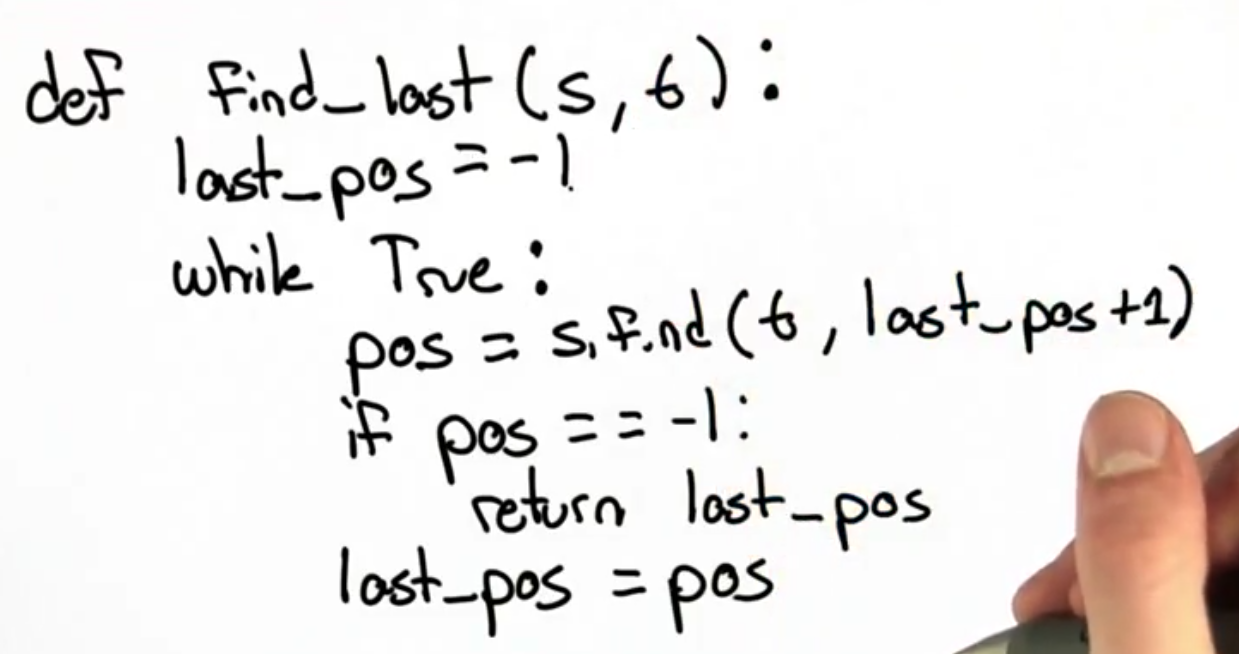 def find_last(s, t):
last_pos = -1
while True:
pos = s.find(t, last_pos+1)
if pos == -1:
return last_pos
last_pos = pos